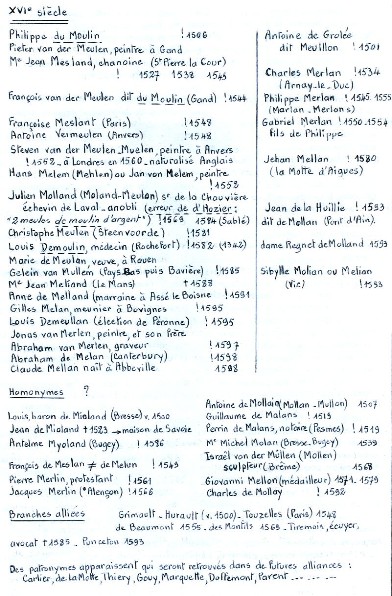 XVIe siècle
Philippe du Moulin ! 1506
Pieter van der Meulen, peintre à Gand
Me Jean Mesland, chanoine (St Pierre la Cour)
! 1527 1538 1545
François van der Meulen dit du Moulin (Gand) ! 1544
Françoise Meslant (Paris) ! 1548
Antoine Vermeulen (Anvers) ! 1548
Steven van der Meulen-Muelen, peintre à Anvers
! 1552 - à Londres en 1560 - naturalisé Anglais
Hans Melem (Mehlen) ou Jan von Melem, peintre
! 1553
Julien Molland (Moland-Meulan) sr de la Chauvière
échevin de Laval - anobli (erreur de d'Hozier :
"2 meules de moulin d'argent") ! 1569 1584 (Sablé)
Christophe Meulen (Steenvoorde) ! 1581
Louis Demoulin, médecin (Rochefort) ! 1582 (1342)
Marie de Meulan, veuve, à Rouen
Gelein van Mullem (Pays Bas puis Bavière) ! 1585
Me Jean Metland (Le Mans) † 1588
Anne de Melland (marraine à Assé le Boisne ! 1591
Gilles Melan, meunier à Bovignes ! 1595
Louis Demeullan (élection de Péronne) ! 1595
Jonas van Merlen, peintre, et son frère
Abraham van Merlen, graveur ! 1597
Abraham de Melan (Canterbury) ! 1598
Claude Mellan nait à Abbeville 1598
Antoine de Grolée
dit Meuillon ! 1501
Charles Merlan ! 1534
(Arnay-le-Duc)
Philippe Merlan ! 1545-1555
(Marlan-Merlans)
Gabriel Merlan ! 1550-1554
fils de Philippe
Jehan Mellan ! 1580
(la Motte d'Aigues)
Jean de la Huillie ! 1593
dit de Mollan (Pont d'Ain)
dame Regnet de Molland 1593
Sibylle Molian ou Melian
(Vic) ! 1593
Homonymes ?
Louis, baron de Mioland (Bresse) v. 1500
Jean de Mioland † 1523 → maison de Savoie
Antelme Myoland (Bugey) ! 1536
François de Meslan ≠ de Melun ! 1545
Pierre Merlin, protestant ! 1561
Jacques Merlin (° Alençon) ! 1566
Antoine de Mollain (Mollan-Mullon) 1507
Guillaume de Malans ! 1513
Perrin de Malans, notaire (Pesmes) ! 1519
Me Michel Molan (Bresse-Bugey) 1539
Israël von der Möllen (Mollen)
sculpteur (Brême) 1568
Giovanni Mellon (médailleur) 1571-1579
Charles de Mollay ! 1592
Branches alliées Grimault - Hurault (v. 1500) - Touzelles (Paris) 1548
de Beaumont 1555 - des Montils 1565 - Tiremois, écuyer,
avocat † 1585 - Ponceton 1593
Des patronymes apparaissent qui seront retrouvés dans de futures alliances :
Cartier, de La Motte, Thiery, Gouy, Marquette, Parent